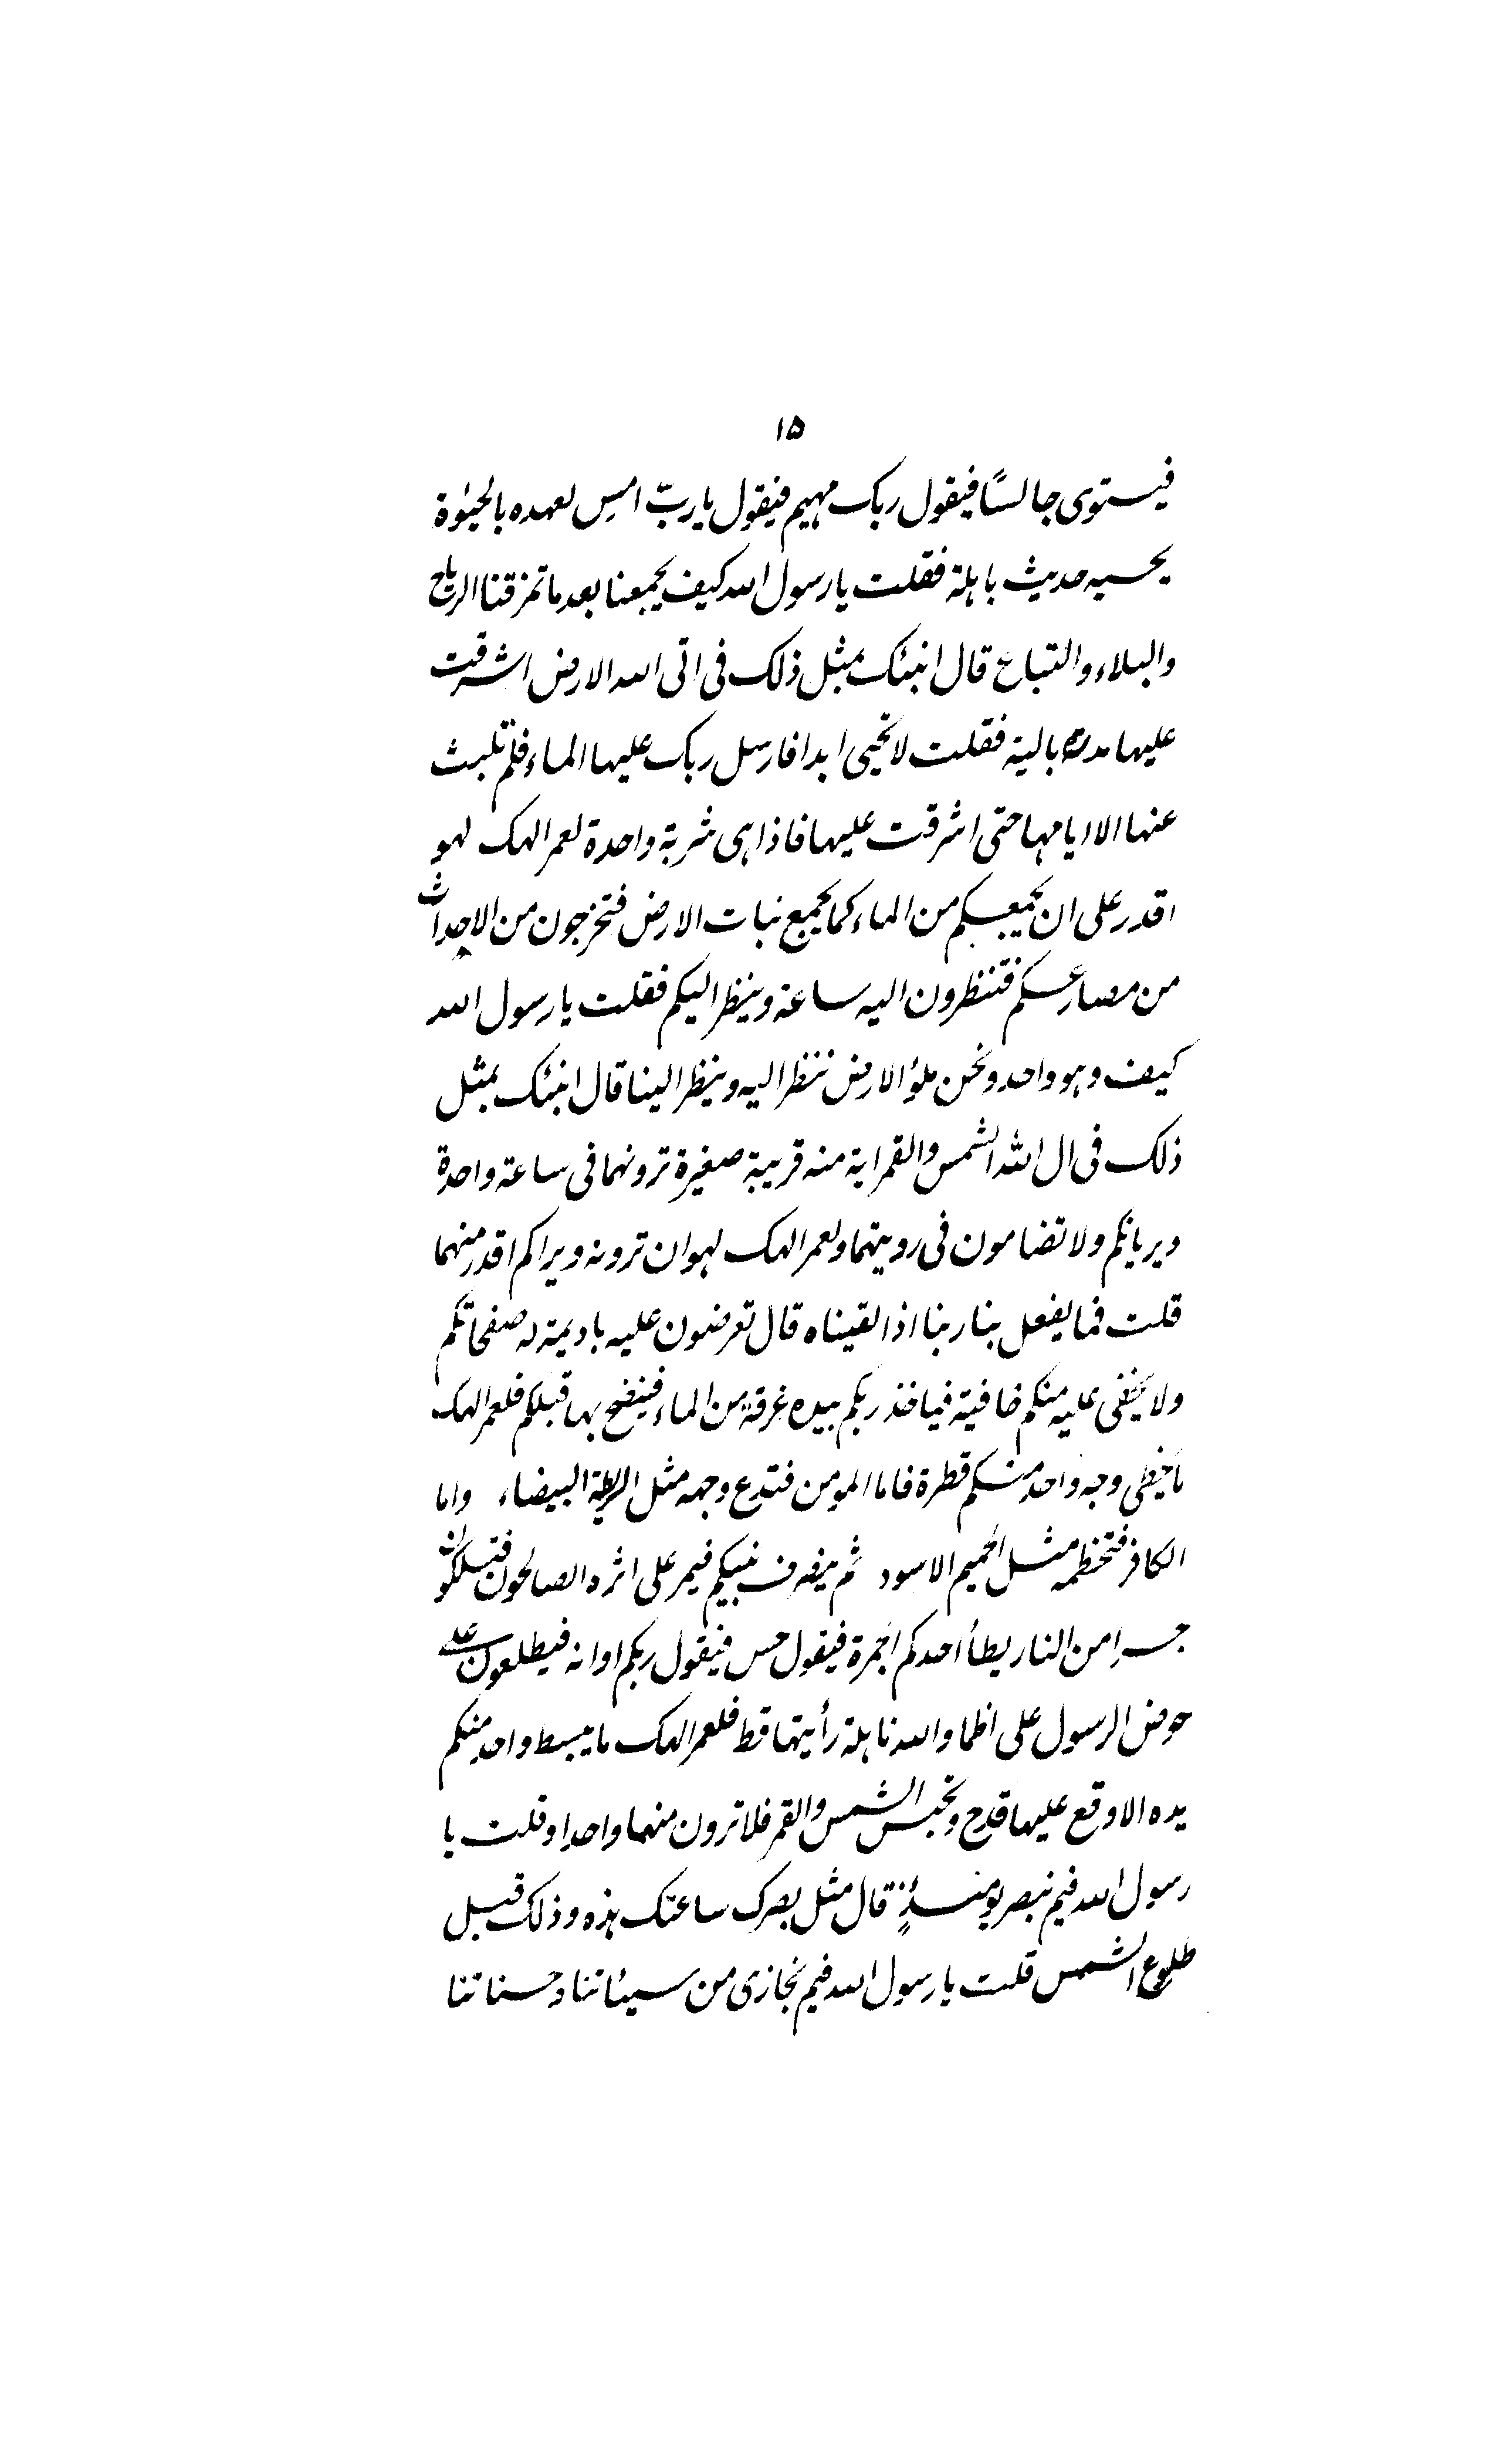 ۱۵
فیستوی جالسًا فیقول ربک مہیم فیقول یا ربّ امس لعہدہ بالحیٰوة
یحسبہ حدیث باہلہ فقلت یا رسول اللہ کیف یجمعنا بعد ما تمزقنا الریاح
والبلاء والسباع قال انبئک بمثل ذلک فی اتی اللہ الارض اشرقت
علیہا مدرة بالیة فقلت لا تحیی ابدا فارسل ربک علیہا الماء فلم تلبث
عنہا الا ایامہا حتی اشرقت علیہا فاذا ہی شربة واحدة لعمر الہک لہو
اقدر علی ان یجمعکم من الماء کما یجمع نبات الارض فتخرجون من الاجداث
من مصارعکم فتنظرون الیہ ساعة وینظر الیکم فقلت یا رسول اللہ
کیف وہو واحد ونحن ملؤ الارض ننظر الیہ وینظر الینا قال انبئک بمثل
ذلک فی ال اللہ الشمس والقمر ایة منہ قریبة صغیرة ترونہما فی ساعة واحدة
ویریانکم ولا تضامون فی رویتہما ولعمر الہک لہو ان ترونہ ویراکم اقدر منہما
قلت فما یفعل بنا ربنا اذا لقیناہ قال تعرضون علیہ بادیة لہ صفحاتکم
ولا یخفی علیہ منکم خافیة فیاخذ ربکم بیدہ غرفة من الماء فینضح بہا قبلکم فلعمر الہک
ما یخطی وجہ واحد منکم قطرة فاما المومن فتدع وجہہ مثل الریطة البیضاء واما
الکافر فتخطمہ مثل الحمیم الاسود ثم ینصرف نبیکم فیمر علی اثرہ الصالحون فتسلکون
جسرا من النار یطأ احدکم الجمرة فیقول حس فیقول ربکم اوانہ فیطلعون علی
حوض الرسول علی اظما واللہ ناہلة رأیتہا قط فلعمر الہک ما یبسط واحد منکم
یدہ الا وقع علیہا قدح وتحبس الشمس والقمر فلا ترون منہما واحدا وقلت یا
رسول اللہ فیم نبصر یومئذٍ قال مثل بصرک ساعتک ہذہ وذلک قبل
طلوع الشمس قلت یا رسول اللہ فیم نجازی من سیئاتنا وحسناتنا